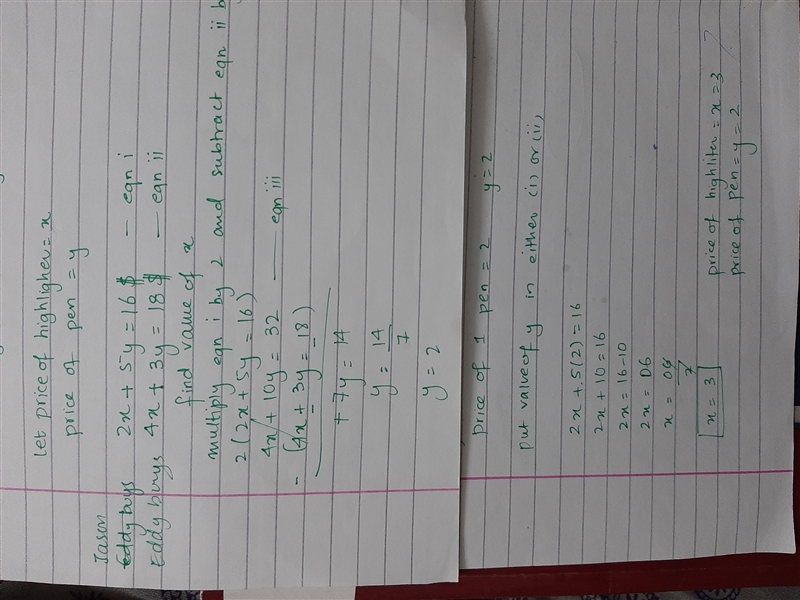 let price of highligher = x
price of pen = y
Jason
Eddy buys 2x + 5y = 16 $ — eqn i
Eddy buys 4x + 3y = 18 $ — eqn ii
find value of x
multiply eqn i by 2 and subtract eqn ii b
2 (2x + 5y = 16)
4x + 10y = 32 — eqn iii
- (4x + 3y = 18)
- -
+ 7y = 14
y = 14
7
y = 2
price of 1 pen = 2 y = 2
put value of y in either (i) or (ii),
2x + 5(2) = 16
2x + 10 = 16
2x = 16 - 10
2x = 06
x = 06
x = 3
price of highliter = x = 3
price of pen = y = 2